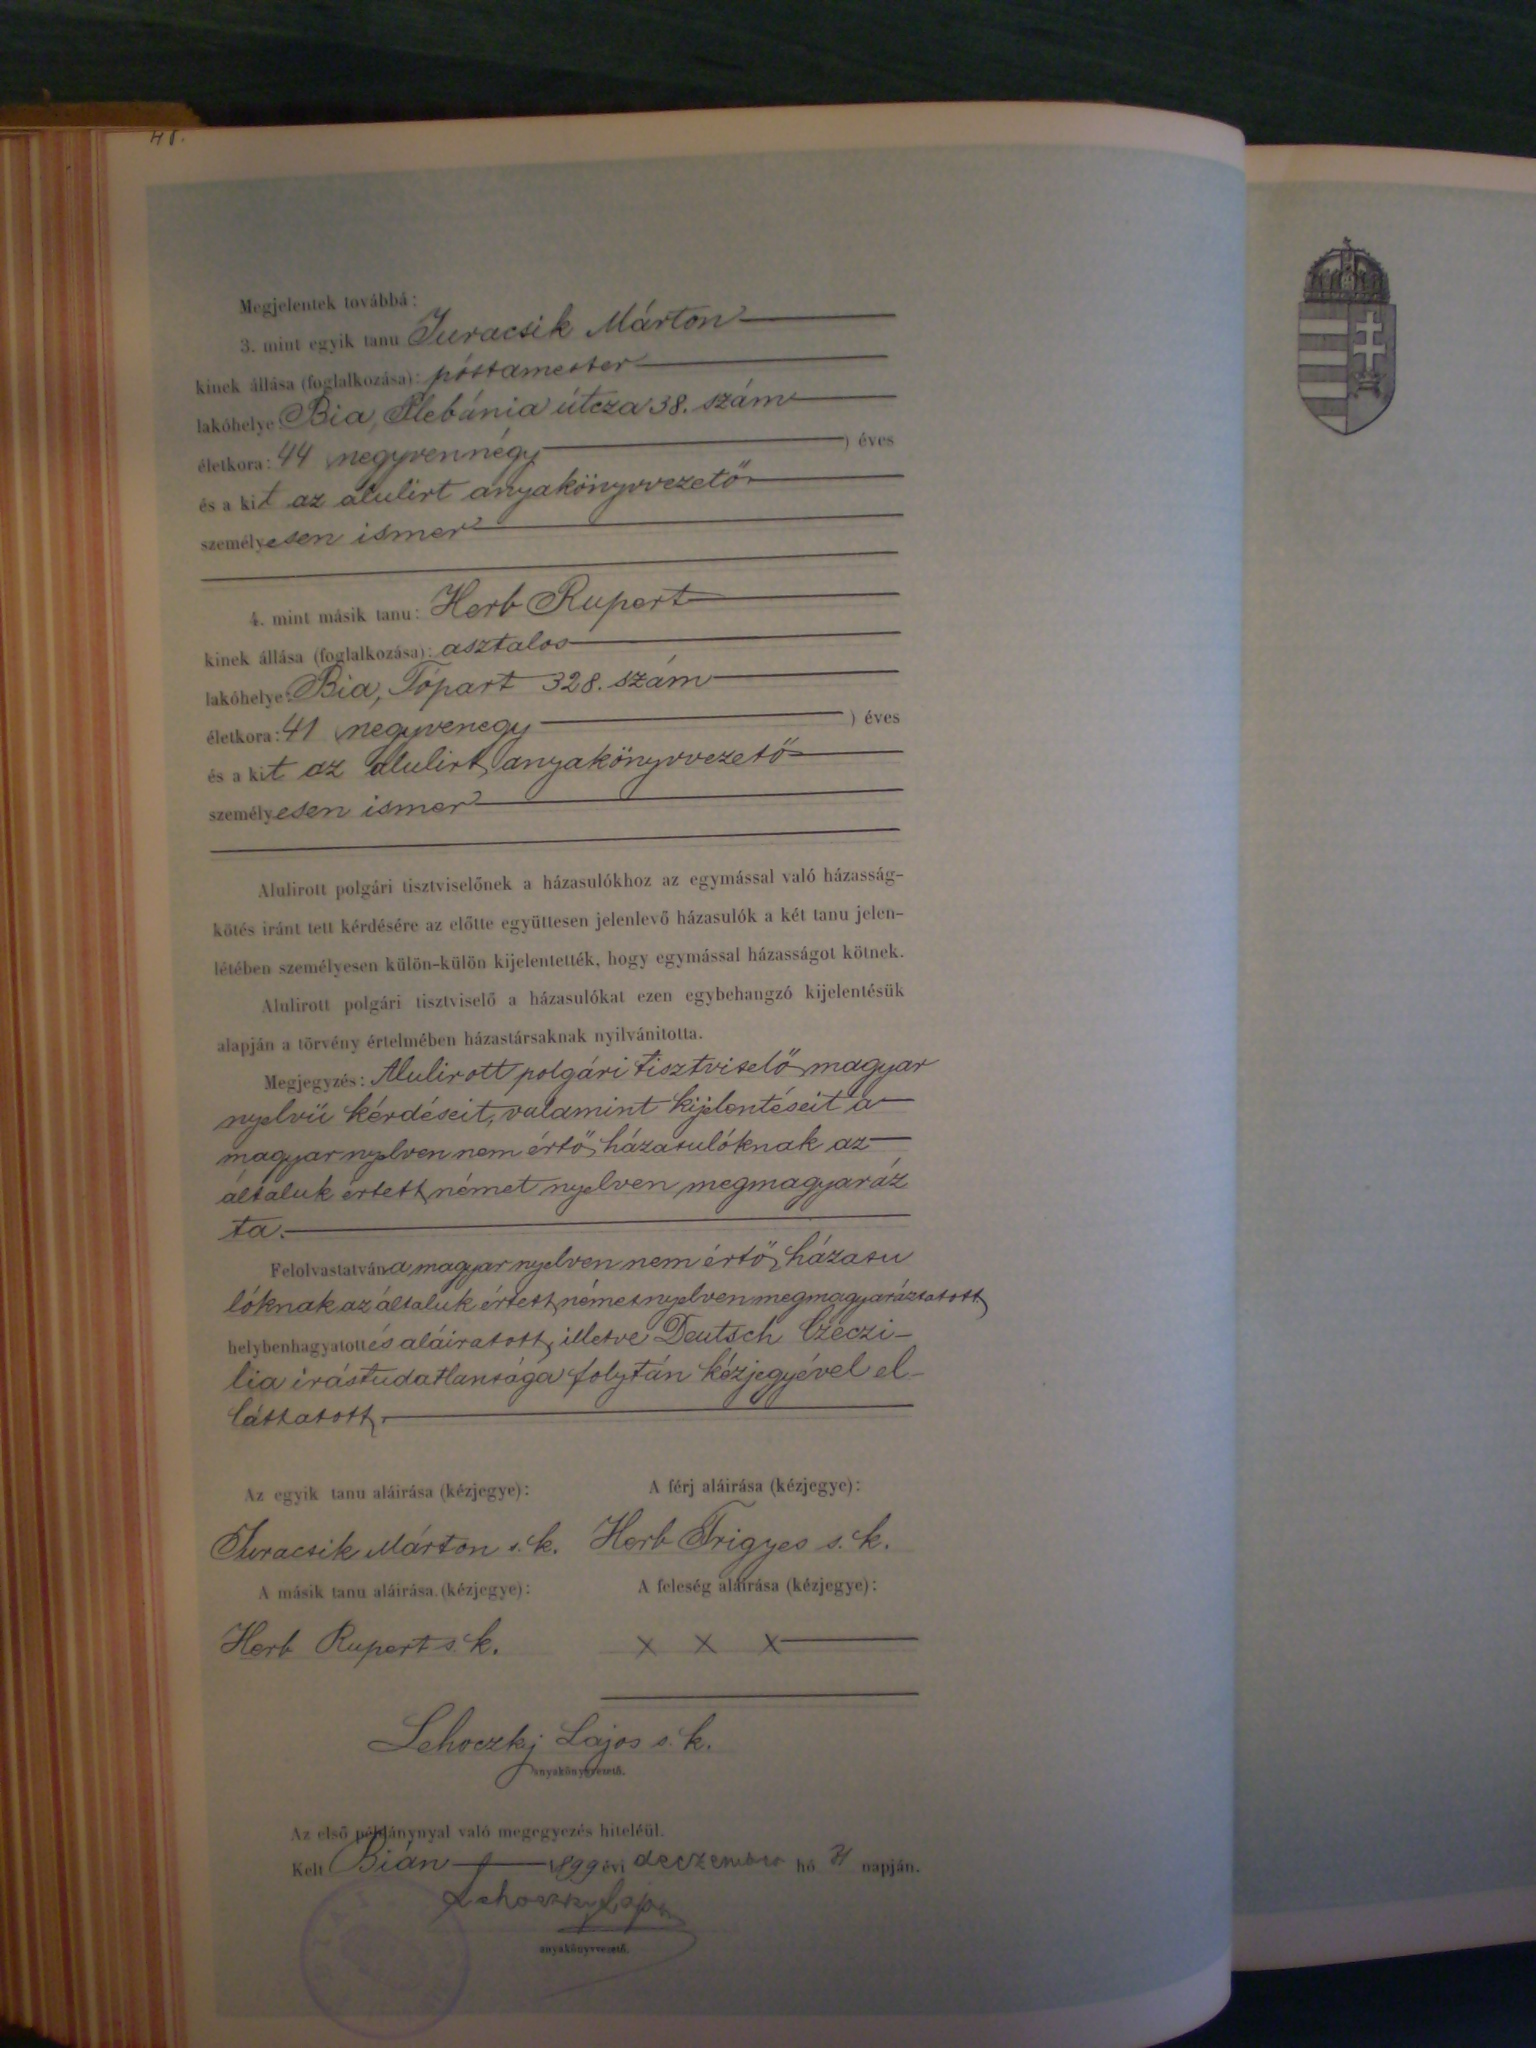 48.
Megjelentek továbbá:
3. mint egyik tanu Juracsik Márton
kinek állása (foglalkozása): póstamester
lakóhelye Bia, Plebánia útcza 38. szám
életkora: 44 negyvennégy ) éves
és a kit az alulirt anyakönyvvezető
személyesen ismer
4. mint másik tanu: Herb Rupert
kinek állása (foglalkozása): asztalos
lakóhelye: Bia, Tópart 328. szám
életkora: 41 negyvenegy ) éves
és a kit az alulirt anyakönyvvezető
személyesen ismer
Alulirott polgári tisztviselőnek a házasulókhoz az egymással való házasság-
kötés iránt tett kérdésére az előtte együttesen jelenlevő házasulók a két tanu jelen-
létében személyesen külön-külön kijelentették, hogy egymással házasságot kötnek.
Alulirott polgári tisztviselő a házasulókat ezen egybehangzó kijelentésük
alapján a törvény értelmében házastársaknak nyilvánitotta.
Megjegyzés: Alulirott polgári tisztviselő magyar
nyelvü kérdéseit, valamint kijelentéseit a
magyar nyelven nem értő házasulóknak az
általuk értett német nyelven megmagyaráz
ta.
Felolvastatván a magyar nyelven nem értő házasu
lóknak az általuk értett német nyelven megmagyaráztatott
helybenhagyatott és aláiratott, illetve Deutsch Czeczi-
lia irástudatlansága folytán kézjegyével el-
láttatott.
Az egyik tanu aláirása (kézjegye): A férj aláirása (kézjegye):
Juracsik Márton s. k. Herb Frigyes s. k.
A másik tanu aláirása (kézjegye): A feleség aláirása (kézjegye):
Herb Rupert s. k. x x x
Lehoczky Lajos s. k.
anyakönyvvezető.
Az első példánynyal való megegyezés hiteléül.
Kelt Bián 1899 évi deczember hó 31 napján.
Lehoczky Lajos
anyakönyvvezető.